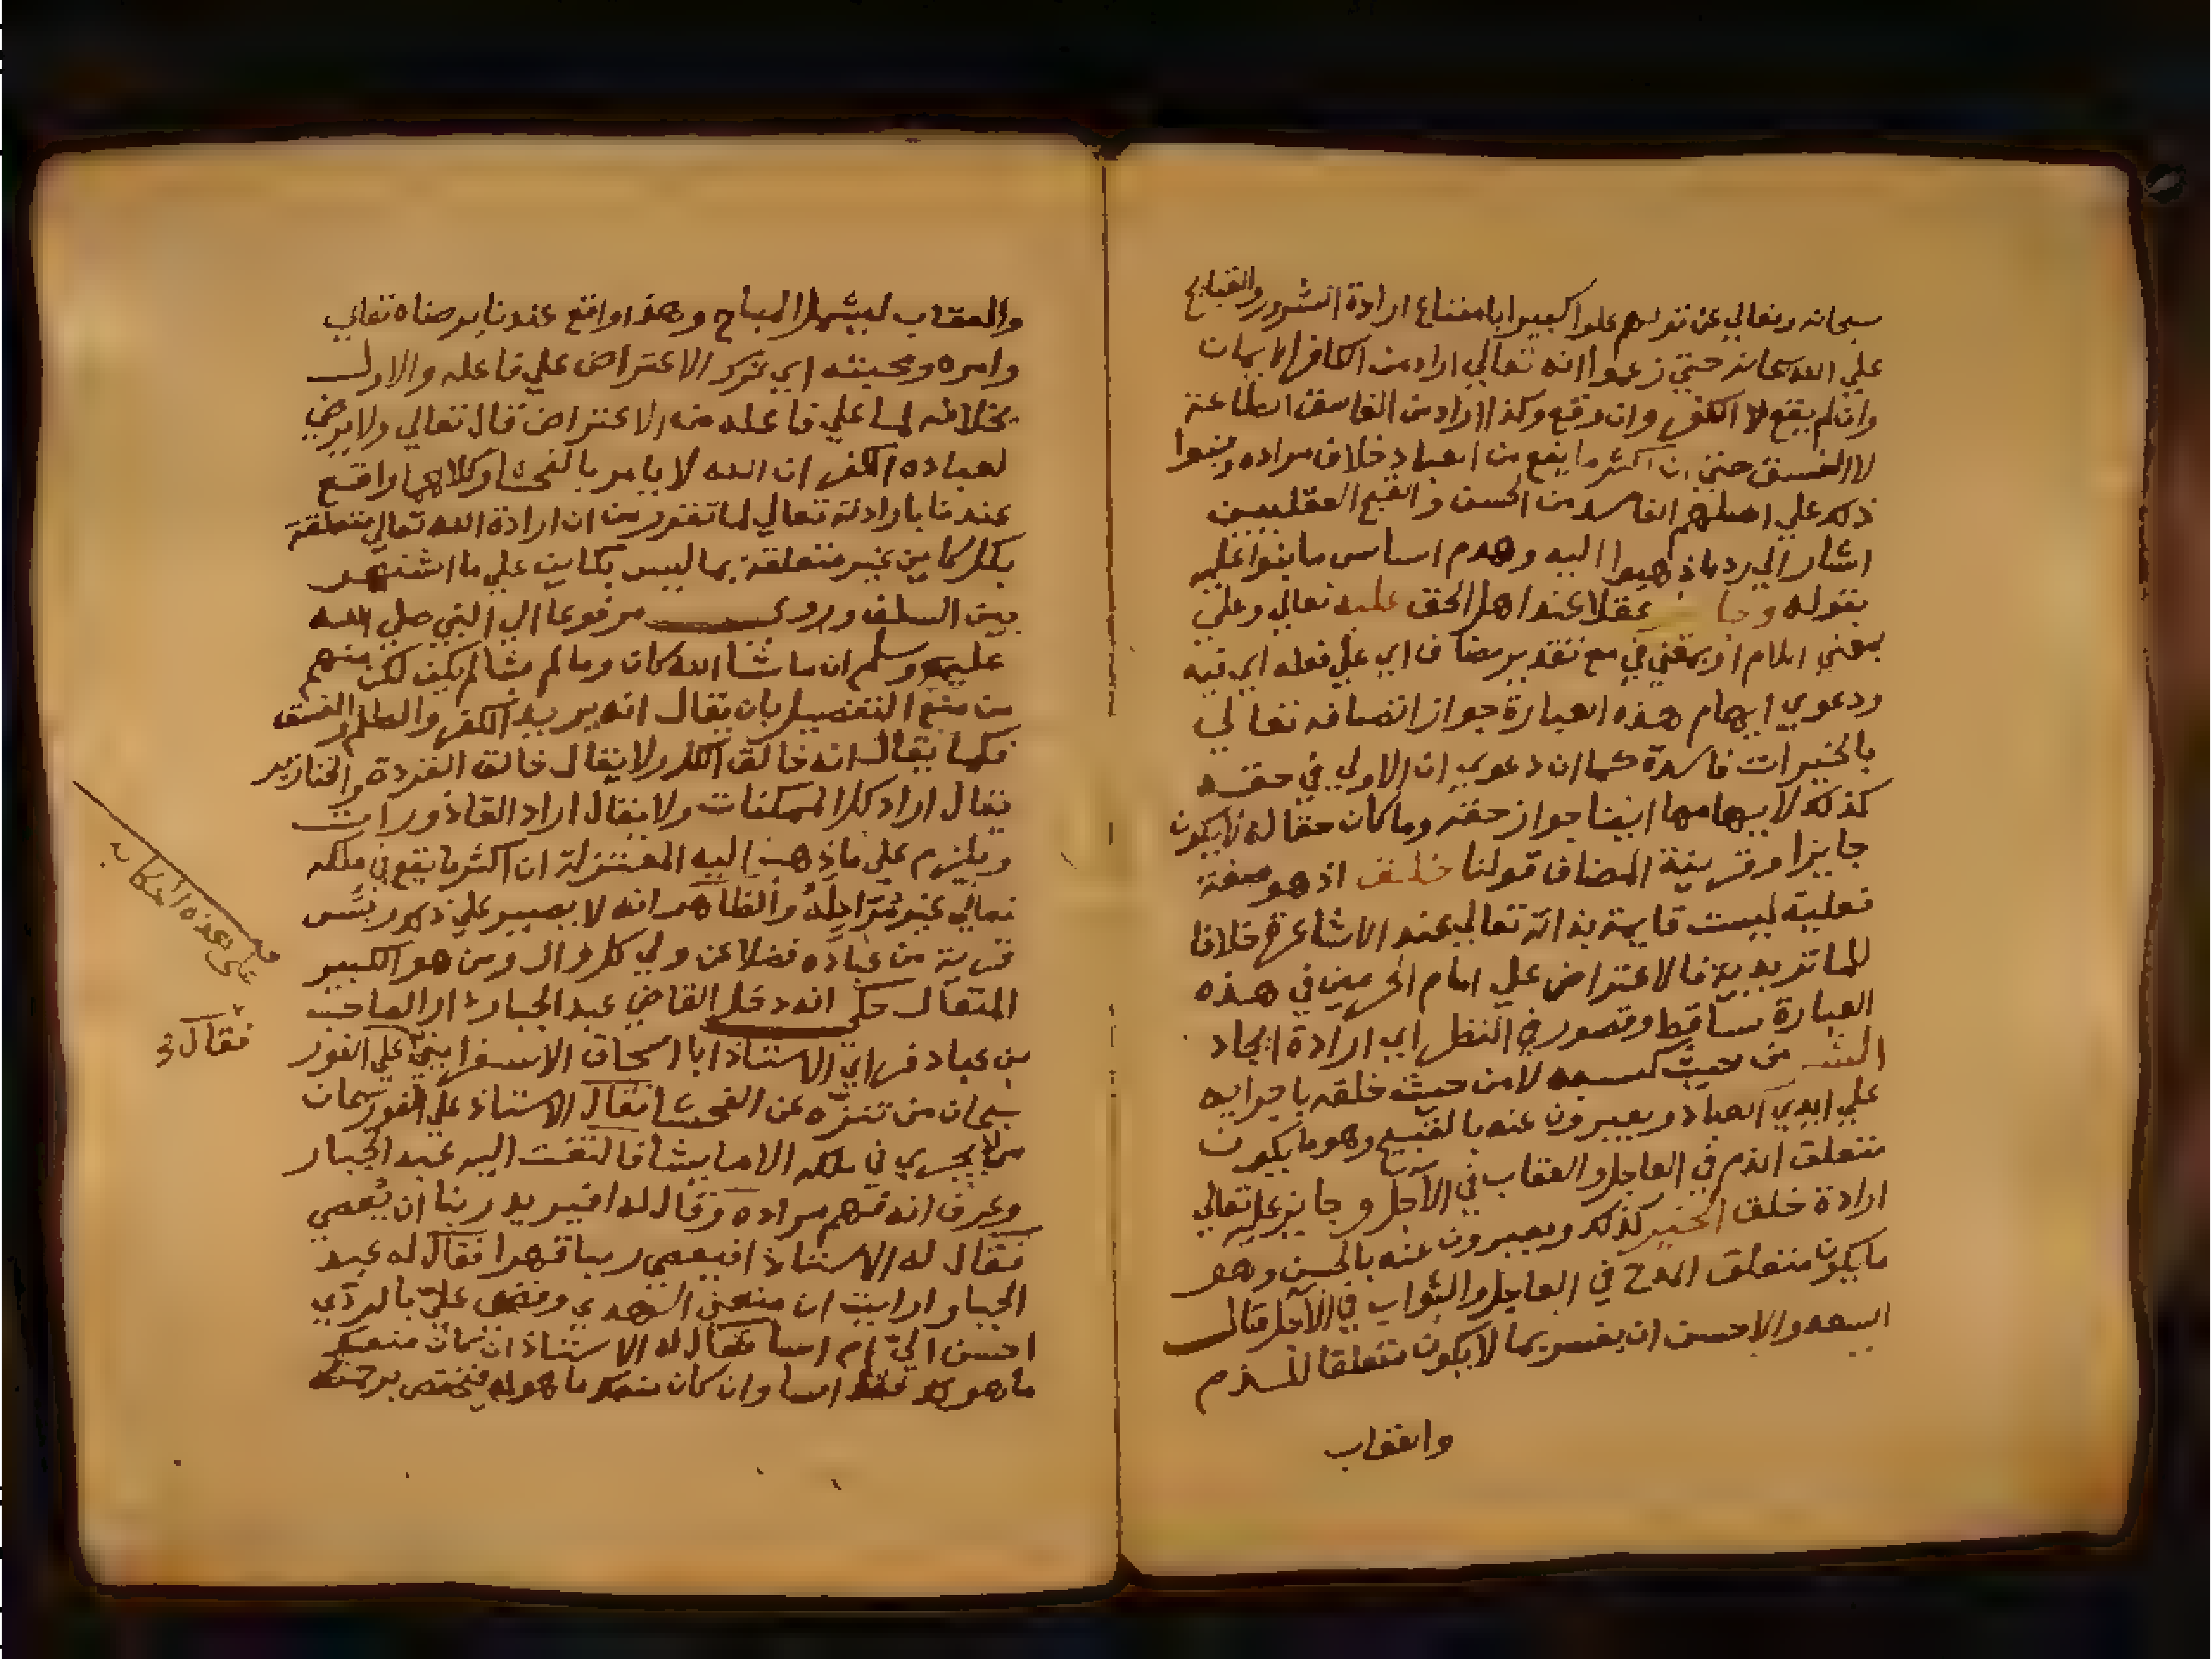 سبحانه وتعالي عن قولهم علوا كبيرا بامتناع ارادة الشرور والقبايح
علي الله سبحانه حتي زعموا انه تعالي اراد من الكافر الايمان
وان لم يقع لا الكفر وان وقع وكذا اراد من الفاسق الطاعة
لا الفسق حتي ان اكثر ما يقع من العباد خلاف مراده وبنوا
ذلك علي اصلهم الفاسد من الحسن والقبح العقليين
اشار الي رد ما ذهبوا اليه وهدم اساس ما بنوا عليه
بقوله وجا عقلا عند اهل الحق عليه تعالي وعلي
بمعني اللام او بمعني في مع تقدير مضاف اي علي فعله اي فيه
ودعوي ايهام هذه العبارة جواز اتصافه تعالي
بالخيرات فاسدة كما ان دعوي ان الاولي في حقه
كذلك لايهامها ايضا جواز حقه وما كان حقا له لا يكون
جايزا وقرينة المضاف قولنا خلق اذ هو صفة
فعلية ليست قايمة بذاته تعالي عند الاشاعرة خلافا
للماتريدية فالاعتراض علي امام الحرمين في هذه
العبارة ساقط وقصور في النظر اي ارادة ايجاد
الشر من حيث كسبه لا من حيث خلقه باجرايه
علي ايدي العباد ويعبرون عنه بالقبيح وهو ما يكون
متعلق الذم في العاجل والعقاب في الآجل وجايز عليه تعالي
ارادة خلق الخير كذلك ويعبرون عنه بالحسن وهو
ما يكون متعلق المدح في العاجل والثواب في الآجل قال
السعد والاحسن ان يفسر بما لا يكون متعلقا للذم
والعقاب
والعقاب ليشمل المباح وهذا واقع عندنا برضاه تعالي
وامره ومحبته اي ترك الاعتراض علي فاعله والاول
بخلافه لما علي فاعله من الاعتراض قال تعالي ولا يرضي
لعباده الكفر ان الله لا يامر بالفحشا وكلاهما واقع
عندنا بارادته تعالي لما تقرر من ان ارادة الله تعالي متعلقة
بكل كاين غير متعلقة بما ليس بكاين علي ما اشتهر
بين السلف وروي مرفوعا الي النبي صلي الله
عليه وسلم ان ما شا الله كان وما لم يشا لم يكن لكن منهم
من منع التفصيل بان يقال انه يريد الكفر والظلم والفسق
فكما يقال انه خالق الكل ولا يقال خالق القردة والخنازير
يقال اراد كل الممكنات ولا يقال اراد القاذورات
ويلزم علي ما ذهب اليه المعتزلة ان اكثر ما يقع في ملكه
تعالي غير مُرَادٍ لهُ والظاهر انه لا يصبر علي ذلك رئيس
قرية من عباده فضلا عن ولي كل وال ومن هو الكبير
المتعال حكي انه دخل القاضي عبد الجبار دار الصاحب
بن عباد فراي الاستاذ ابا اسحاق الاسفرايني علي الفور
سبحان من تنزه عن الفحشا فقال الاستاذ علي الفور سبحان
من لا يجري في ملكه الا ما يشا فالتفت اليه عبد الجبار
وعرف انه فهم مراده وقال له افيريد ربنا ان يُعصي
فقال له الاستاذ افيعصي ربنا قهرا فقال له عبد
الجبار ارايت ان منعني الهدي وقضي علي بالردي
احسن الي ام اسا فقال له الاستاذ ان كان منعك
ما هو لك فقد اسا وان كان منعك ما هو له فيختص برحمته
علي هذه الحكاية
فقال